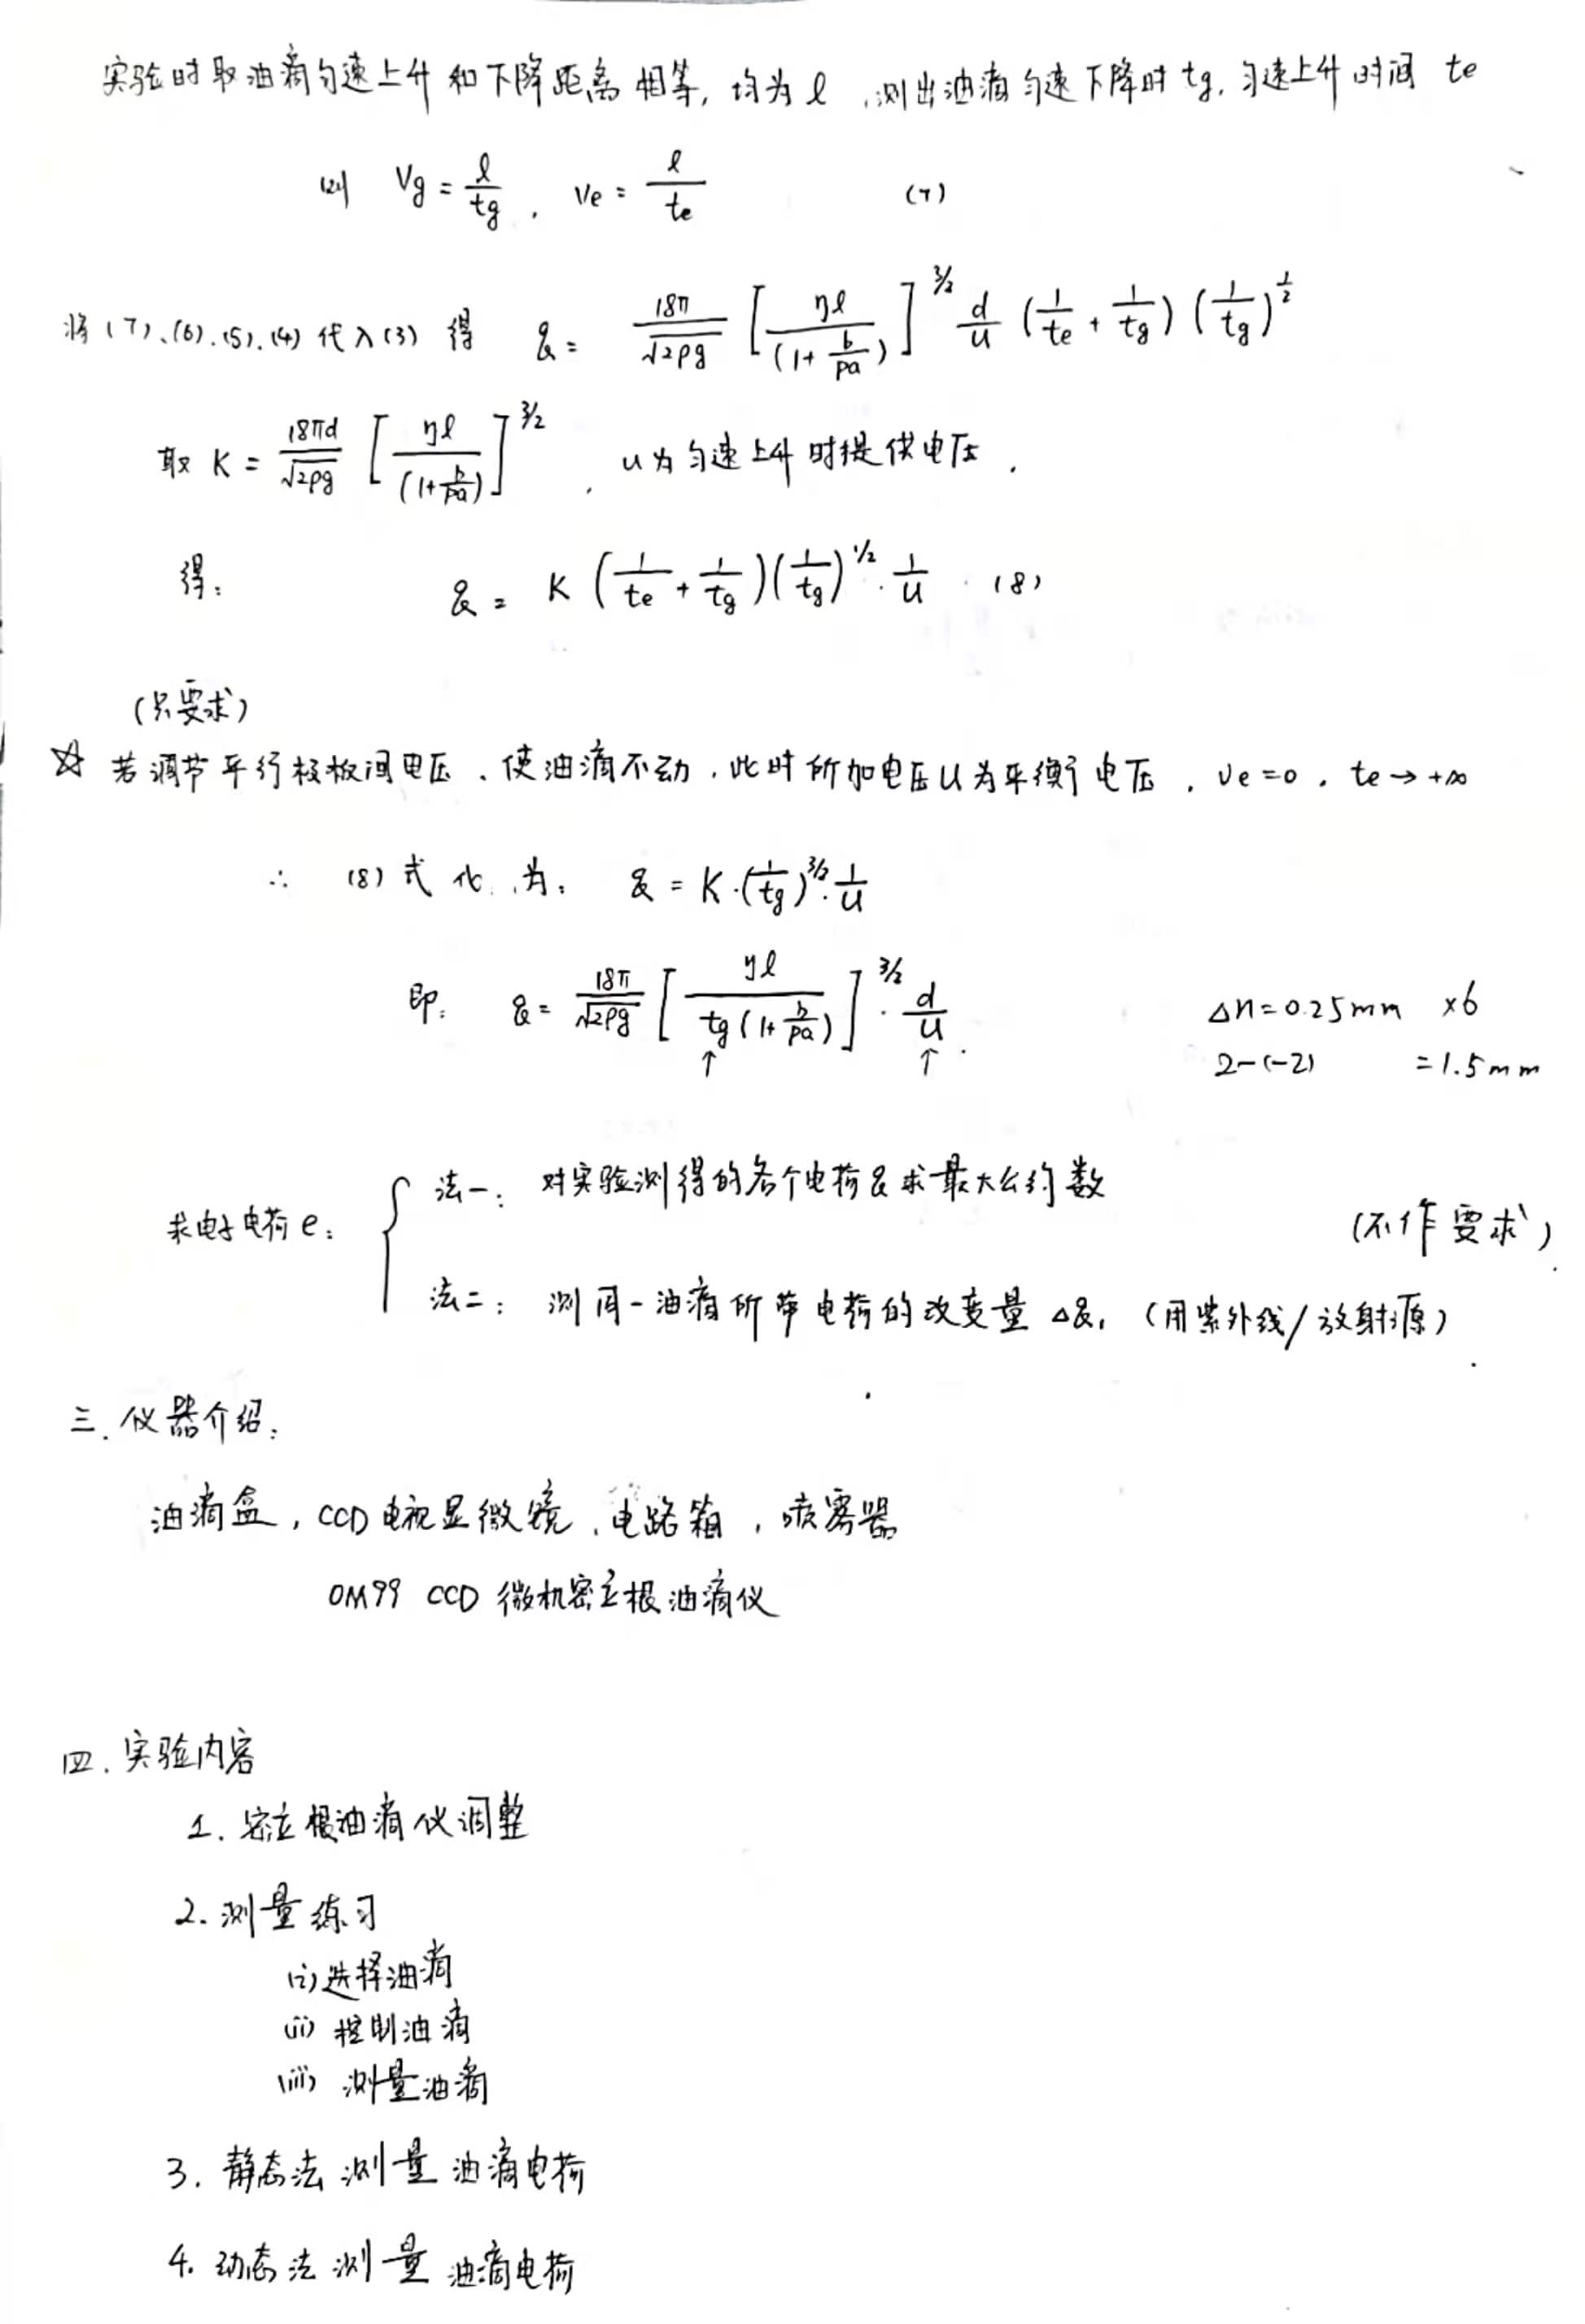 实验时取油滴匀速上升和下降距离相等，均为 l，测出油滴匀速下降时 tg，匀速上升时间 te
则 Vg = l/tg , Ve = l/te (7)
将(7)、(6)、(5)、(4)代入(3)得 q = 18π/√2ρg [ηl/(1+b/pa)]^3/2 d/u (1/te + 1/tg)(1/tg)^1/2
取 K = 18πd/√2ρg [ηl/(1+b/pa)]^3/2 , u为匀速上升时提供电压.
得: q = K (1/te + 1/tg)(1/tg)^1/2 · 1/u (8)
(只要求)
☆ 若调节平行极板间电压、使油滴不动，此时所加电压U为平衡电压，Ve=0，te→+∞
∴ (8)式化为: q = K·(1/tg)^3/2 · 1/u
即: q = 18π/√2ρg [ηl/tg(1+b/pa)]^3/2 · d/u .
↑ ↑
Δn=0.25mm ×6
2-(-2) =1.5mm
求电子电荷e:
法一: 对实验测得的各个电荷q求最大公约数
(不作要求)
法二: 测同一油滴所带电荷的改变量Δq, (用紫外线/放射源)
三. 仪器介绍:
油滴盒，CCD电视显微镜、电路箱，喷雾器
OM99 CCD 微机密立根油滴仪
四. 实验内容
1. 密立根油滴仪调整
2. 测量练习
(i) 选择油滴
(ii) 控制油滴
(iii) 测量油滴
3. 静态法测量油滴电荷
4. 动态法测量油滴电荷